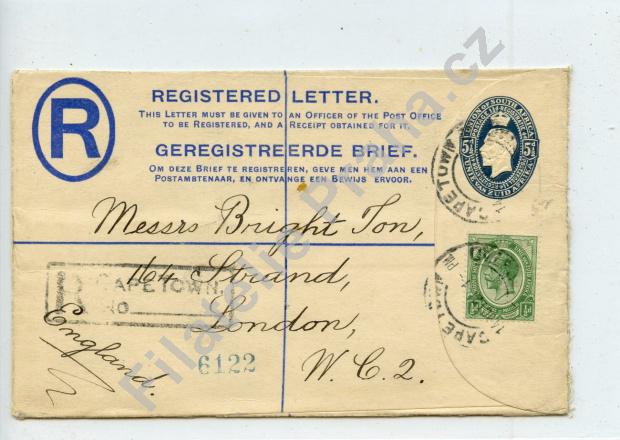 R
REGISTERED LETTER.
THIS LETTER MUST BE GIVEN TO AN OFFICER OF THE POST OFFICE
TO BE REGISTERED, AND A RECEIPT OBTAINED FOR IT.
GEREGISTREERDE BRIEF.
OM DEZE BRIEF TE REGISTREREN, GEVE MEN HEM AAN EEN
POSTAMBTENAAR, EN ONTVANGE EEN BEWIJS ERVOOR.
UNION OF SOUTH AFRICA
UNIE VAN ZUID AFRIKA
CAPE TOWN
Messrs Bright Son,
164 Strand,
London,
W.C.2.
England.
R CAPE TOWN.
NO
6122
½d ½d
CAPE TOWN
Filatelie Praha.cz